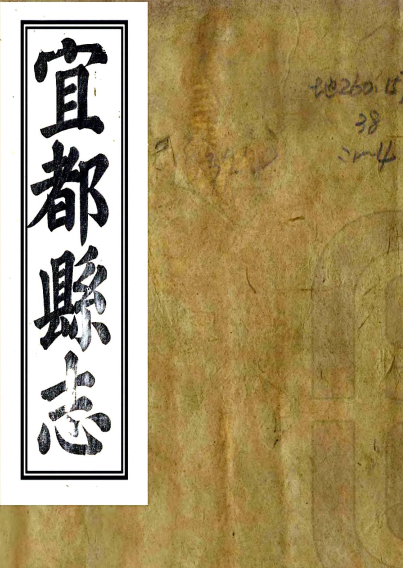 宜都縣志
地260.15
38
:m4